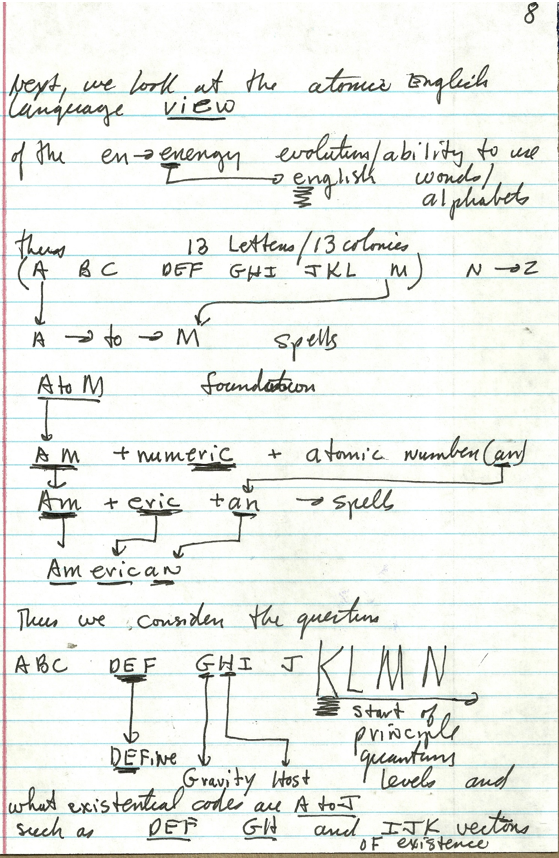 8
Next, we look at the atomic English
Language view
of the en→enengy evolution/ability to use
english wonds/
alphabets
thus 13 Lettens/13 colonies
(A BC DEF GHI JKL M) N→Z
A → to → M spells
A to M foundation
AM + numeric + atomic number (an)
Am + eric + an → spells
American
Thus we consider the question
ABC DEF GHI J KLMN
start of
principle
DEFine quantum
Gravity Host levels and
what existential codes are A to J
such as DEF GH and IJK vectors
OF existence